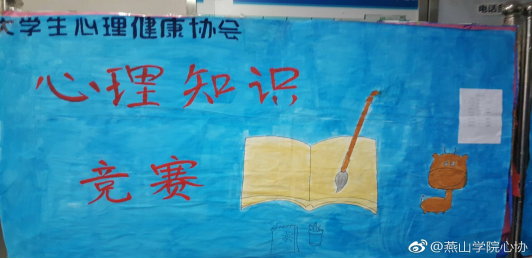 大学生心理健康协会
心理知识
竞赛
@燕山学院心协